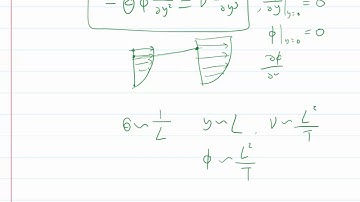 - 6 φ ∂y² = ν ∂y³ , ∂y |y=0 = 0
φ |y=0 = 0
∂φ
6 ~ 1/L y ~ L , ν ~ L²/T
φ ~ L²/T